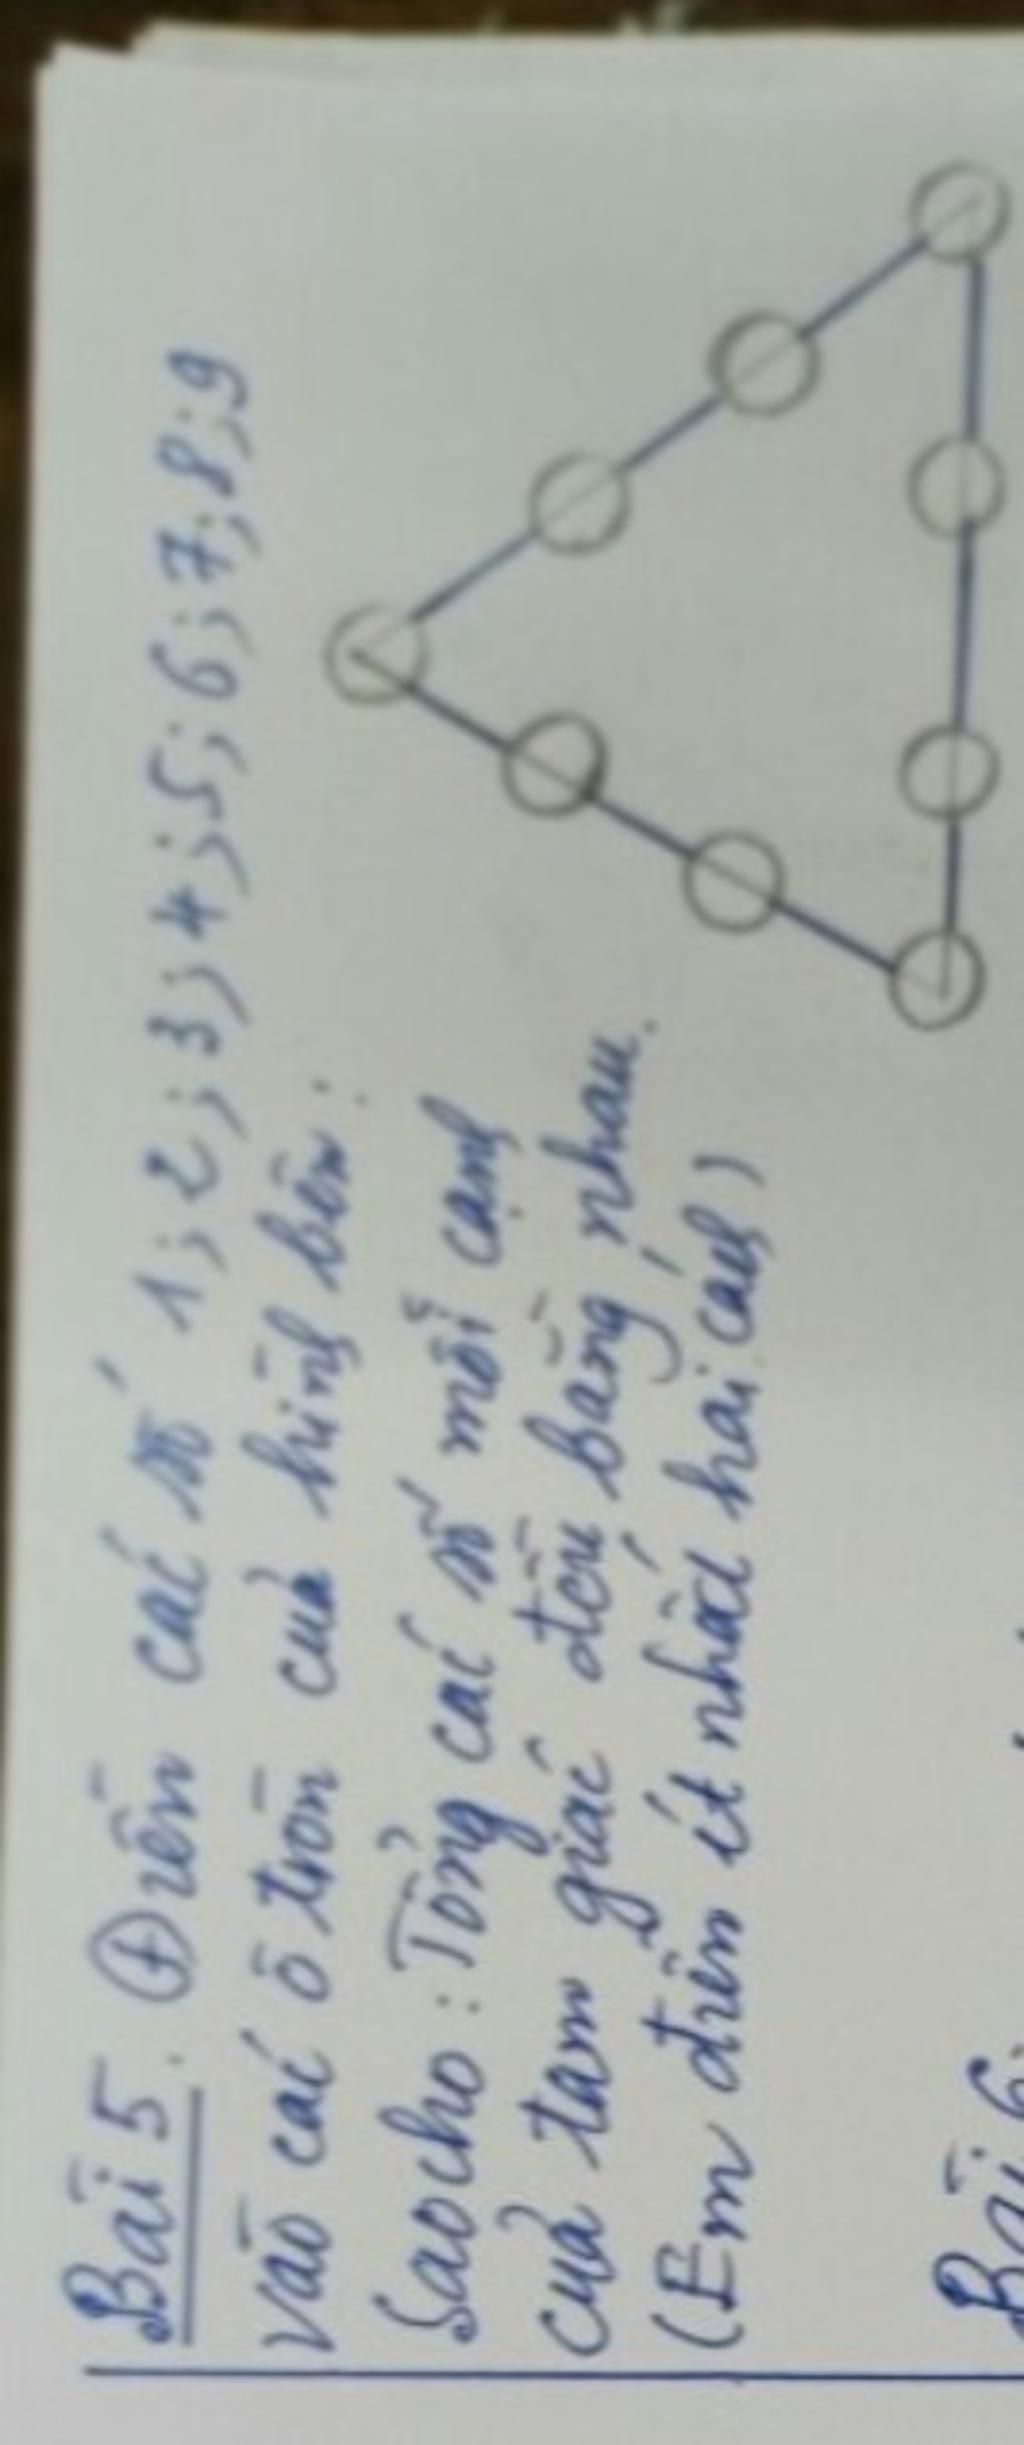 Bài 5. Điền các số 1; 2; 3; 4; 5; 6; 7; 8; 9
vào các ô tròn của hình bên:
Sao cho: Tổng các số mỗi cạnh
của tam giác đều bằng nhau.
(Em điền ít nhất hai cách)
Bài 6: